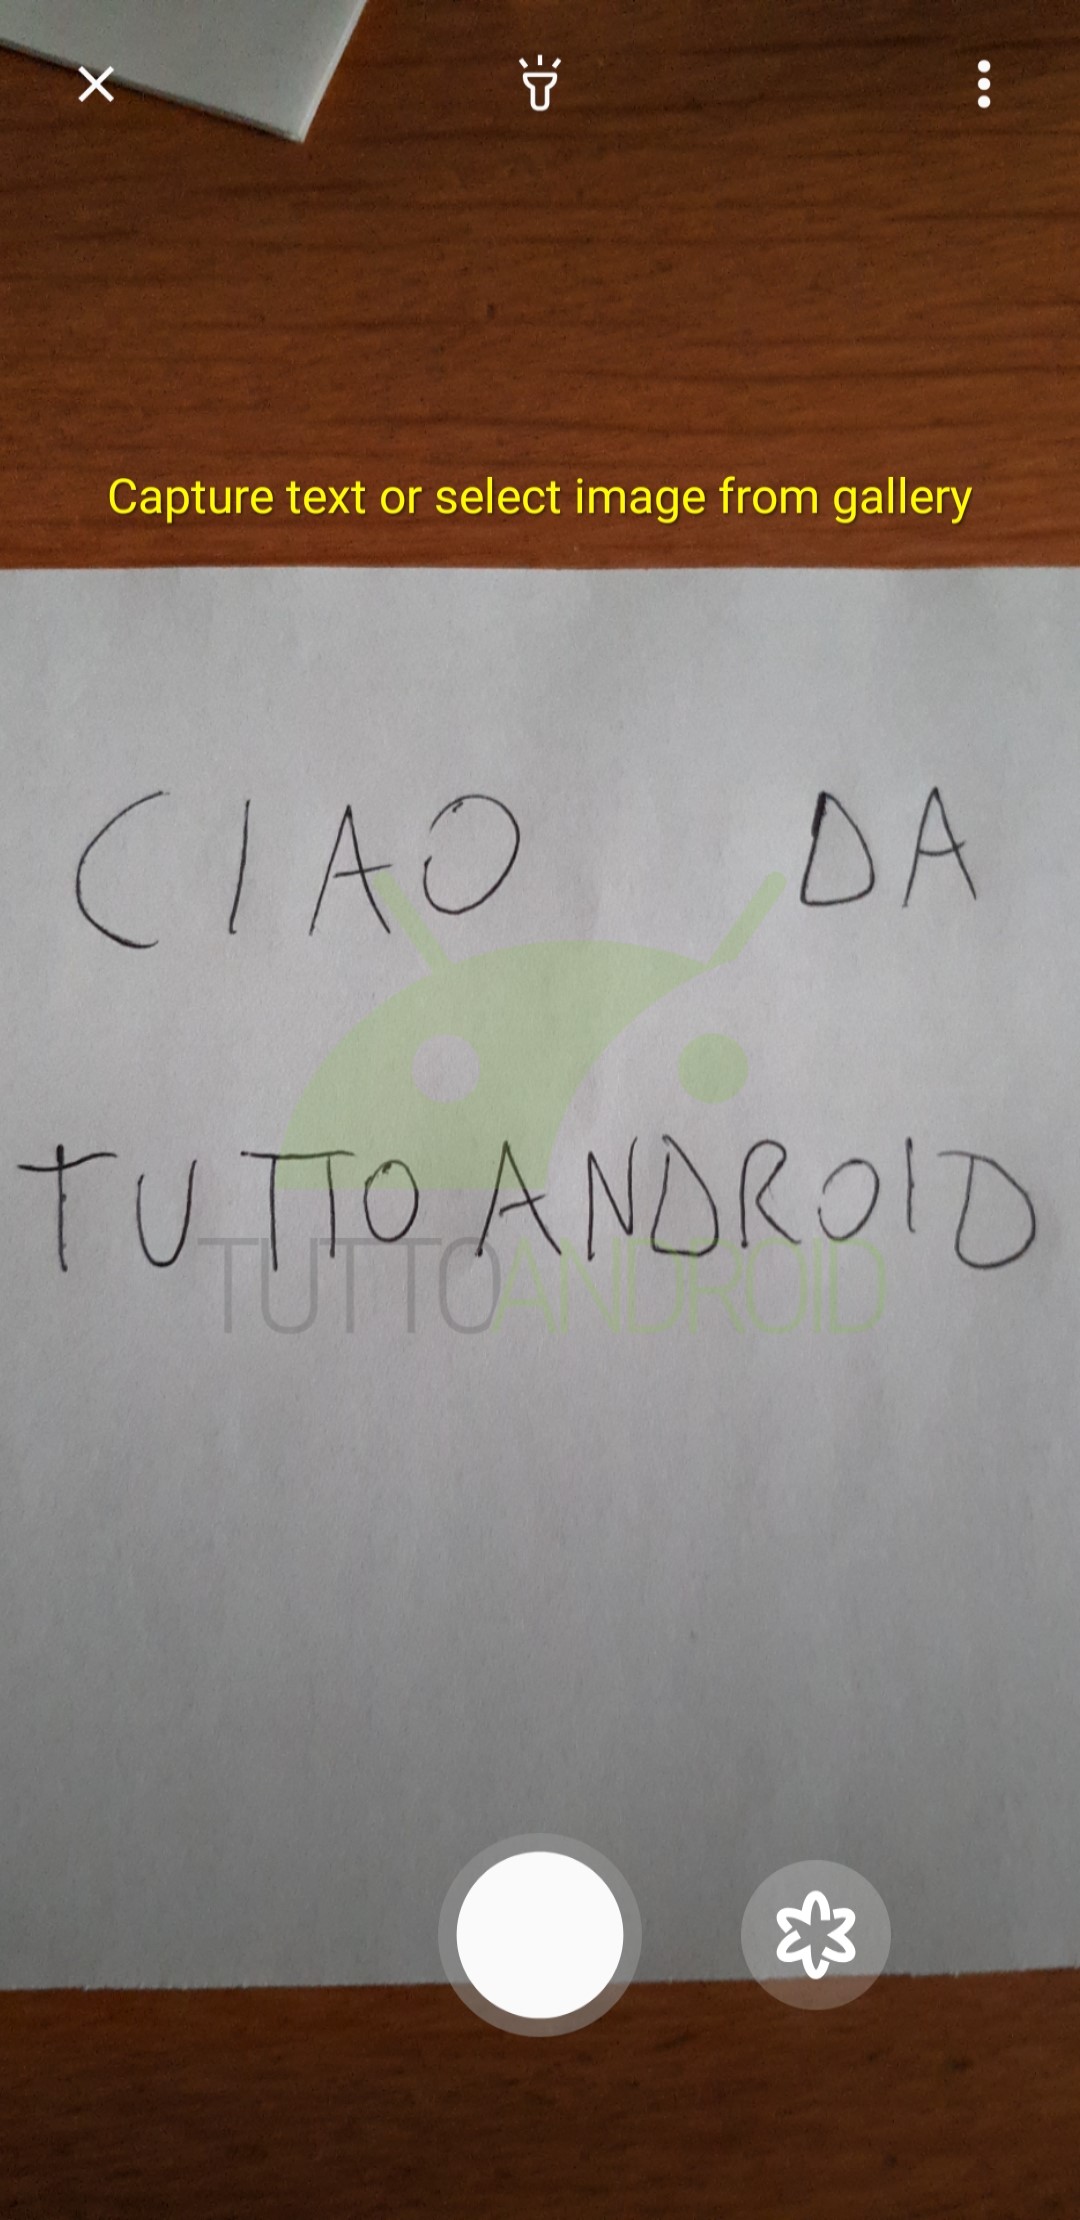 Capture text or select image from gallery
CIAO DA
TUTTOANDROID
TUTTOANDROID